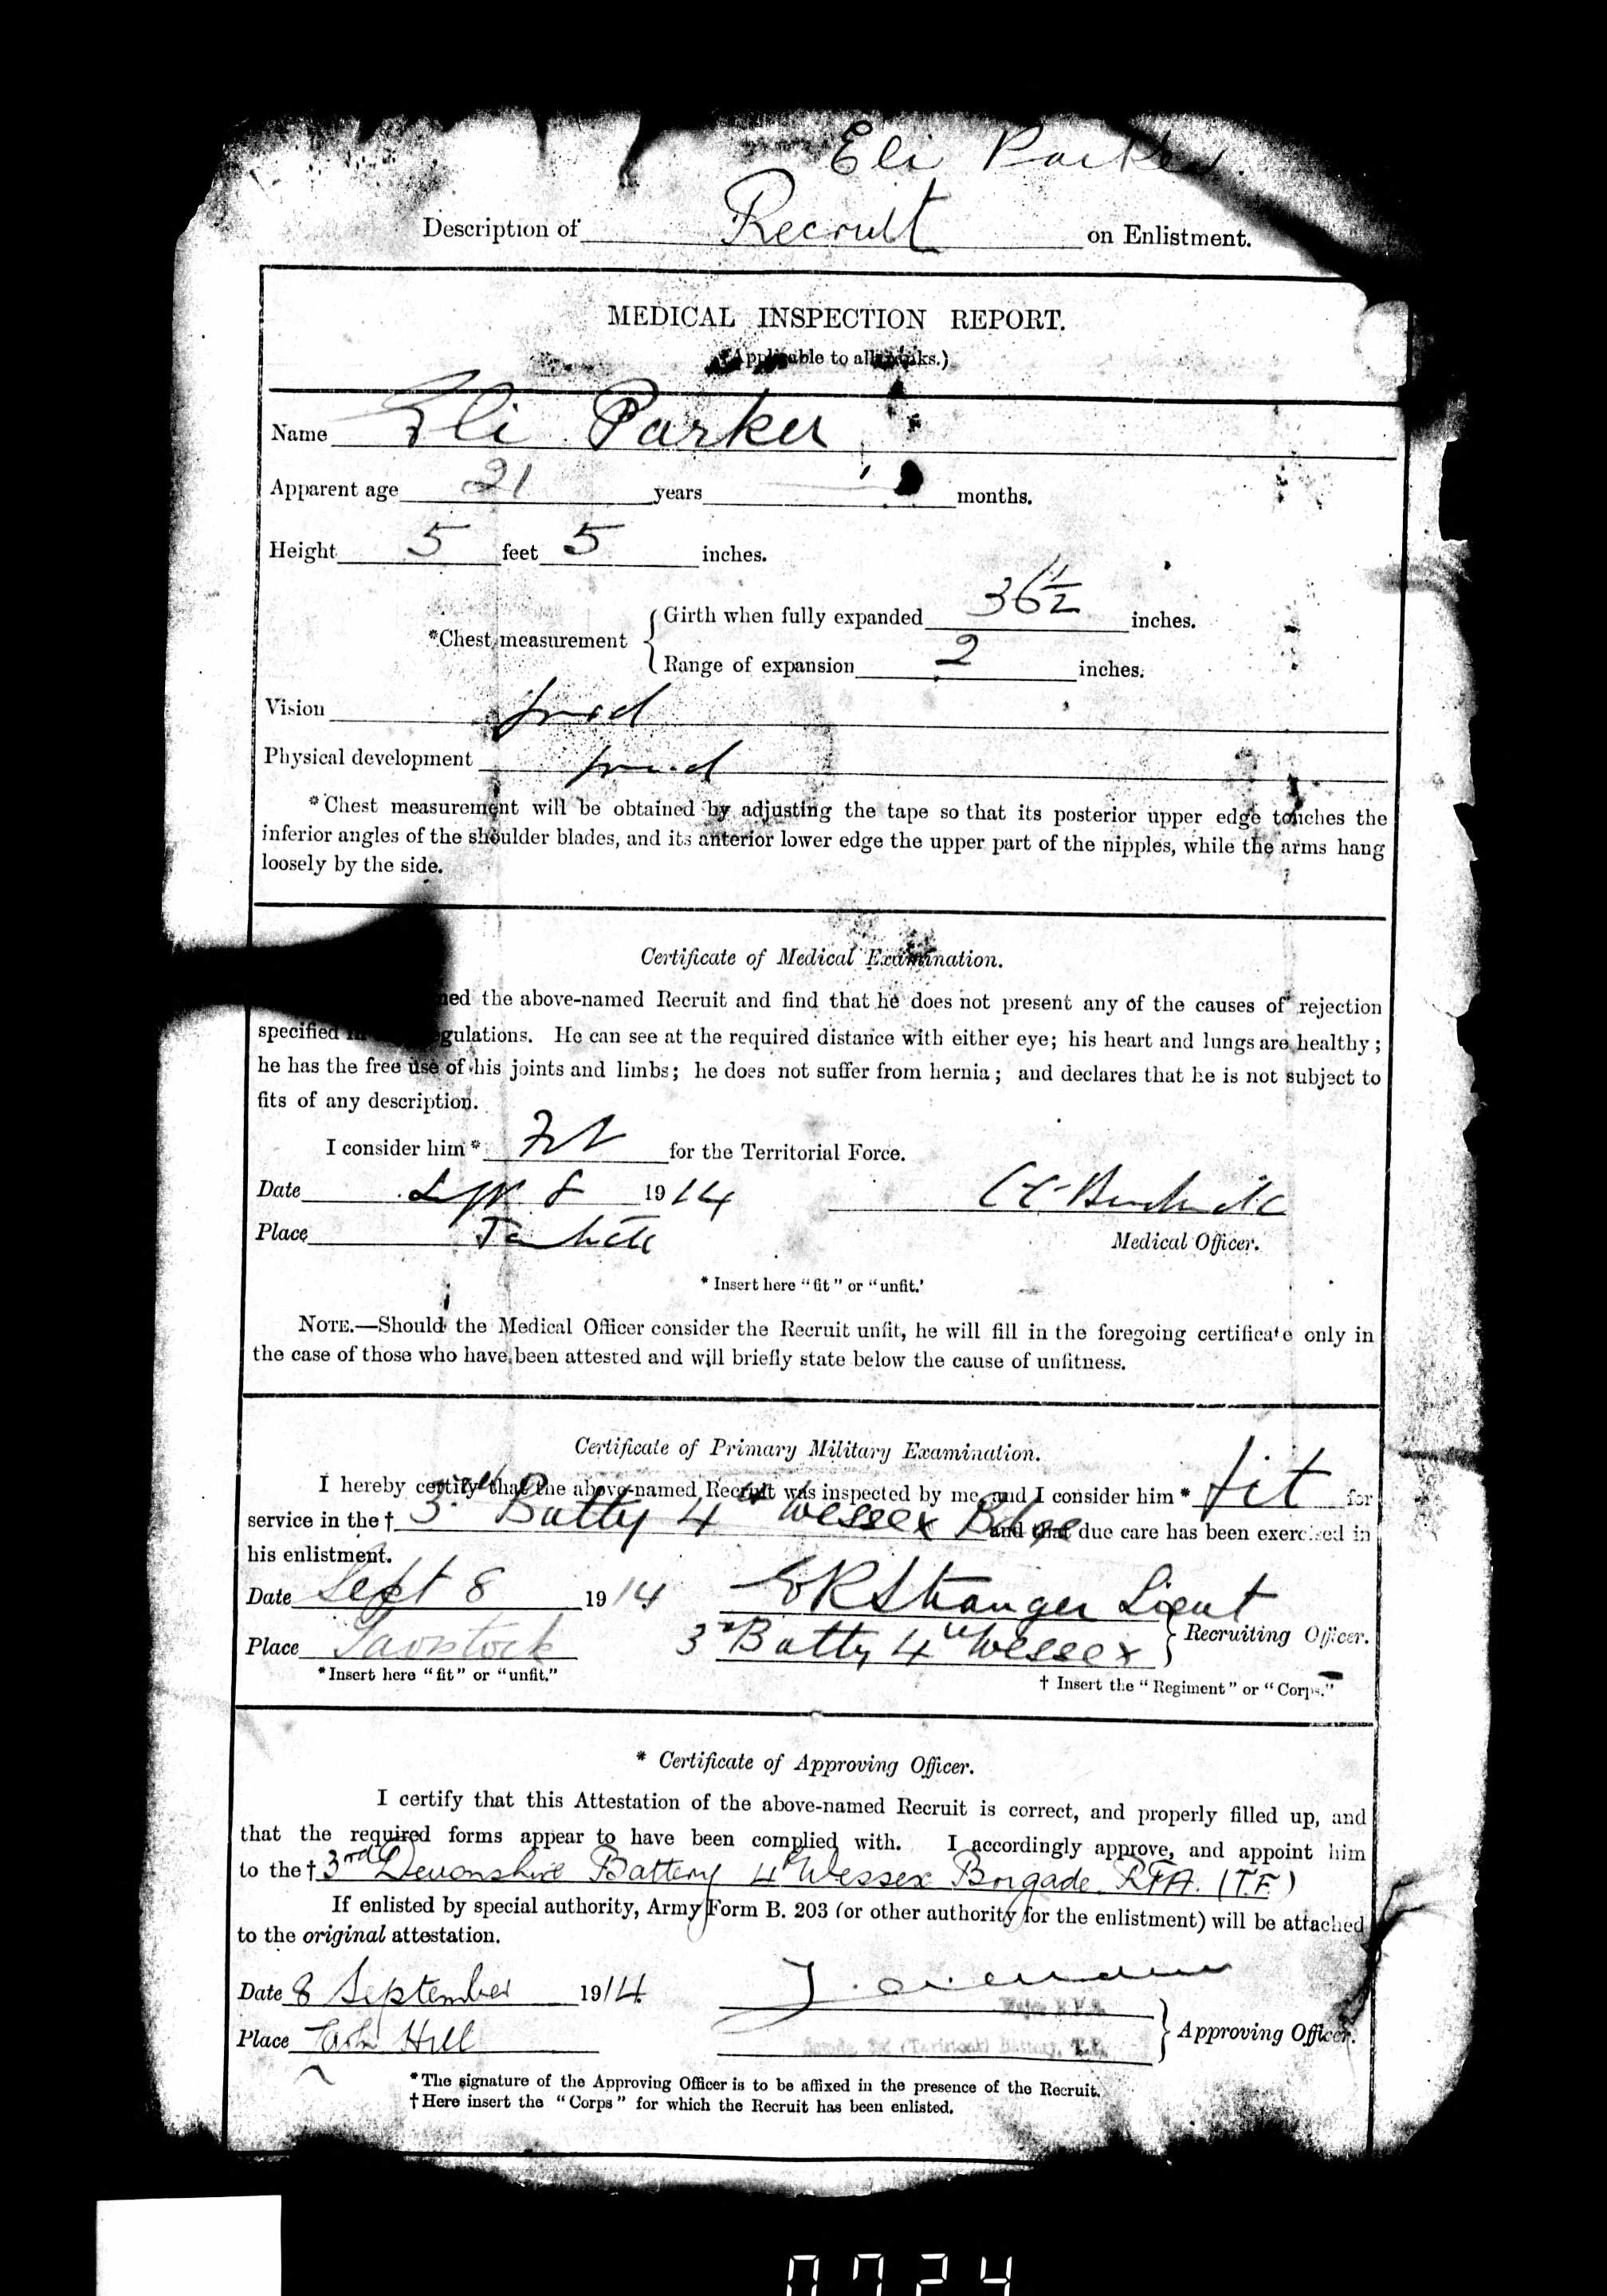 Eli Parker.
Description of Recruit on Enlistment.
MEDICAL INSPECTION REPORT.
(Applicable to all ranks.)
Name Eli Parker
Apparent age 21 years months.
Height 5 feet 5 inches.
*Chest measurement { Girth when fully expanded 36 1/2 inches.
Range of expansion 2 inches.
Vision good
Physical development good
*Chest measurement will be obtained by adjusting the tape so that its posterior upper edge touches the
inferior angles of the shoulder blades, and its anterior lower edge the upper part of the nipples, while the arms hang
loosely by the side.
Certificate of Medical Examination.
the above-named Recruit and find that he does not present any of the causes of rejection
specified He can see at the required distance with either eye; his heart and lungs are healthy;
he has the free use of his joints and limbs; he does not suffer from hernia; and declares that he is not subject to
fits of any description.
I consider him* Fit for the Territorial Force.
Date Sept 8 1914
Place
Medical Officer.
* Insert here "fit" or "unfit.'
NOTE.—Should the Medical Officer consider the Recruit unfit, he will fill in the foregoing certificate only in
the case of those who have been attested and will briefly state below the cause of unfitness.
Certificate of Primary Military Examination.
I hereby certify that the above-named Recruit was inspected by me and I consider him* fit for
service in the † 3rd Batty 4th Wessex Bde and that due care has been exercised in
his enlistment.
Date Sept 8 1914 Stranger Lieut
Place Tavistock 3rd Batty 4th Wessex } Recruiting Officer.
*Insert here "fit" or "unfit." † Insert the "Regiment" or "Corps."
* Certificate of Approving Officer.
I certify that this Attestation of the above-named Recruit is correct, and properly filled up, and
that the required forms appear to have been complied with. I accordingly approve, and appoint him
to the† 3rd Devonshire Battery 4th Wessex Brigade RFA. (T.F.)
If enlisted by special authority, Army Form B. 203 (or other authority for the enlistment) will be attached
to the original attestation.
Date 8 September 1914
Place Hill } Approving Officer.
*The signature of the Approving Officer is to be affixed in the presence of the Recruit.
†Here insert the "Corps" for which the Recruit has been enlisted.
0724